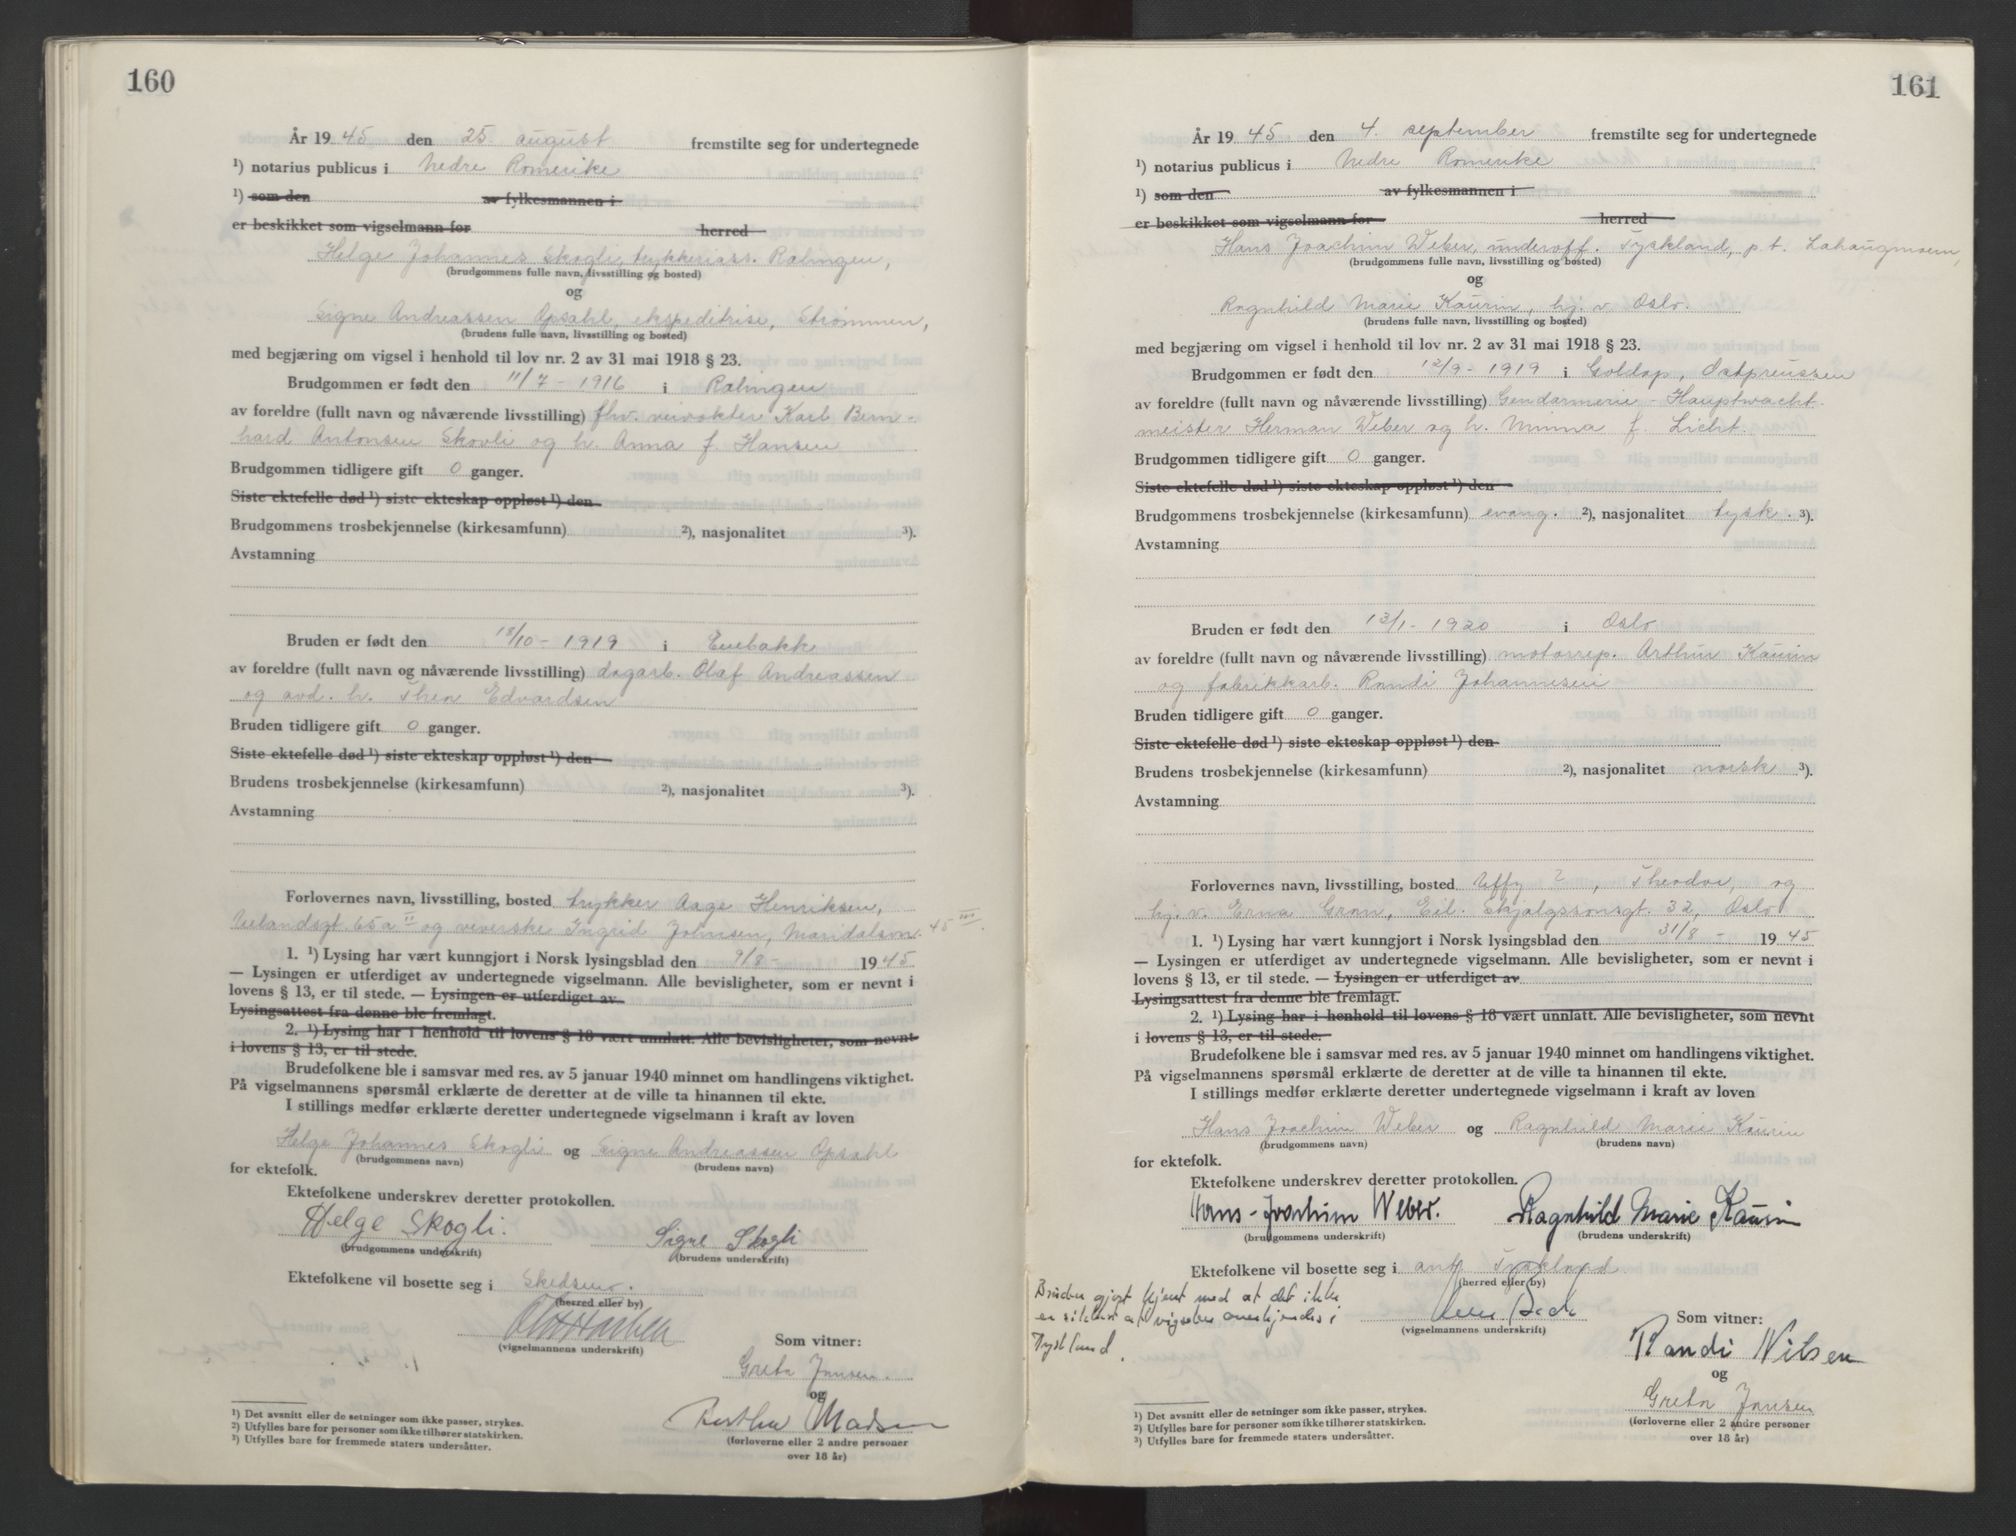 160
År 1945 den 25. august fremstilte seg for undertegnede
¹) notarius publicus i Nedre Romerike
¹) som den av fylkesmannen i
er beskikket som vigselmann for herred
Helge Johannes Skogli, trykkeriass. Rælingen,
(brudgommens fulle navn, livsstilling og bosted)
og
Signe Andreassen Opsahl, ekspeditrise, Strømmen,
(brudens fulle navn, livsstilling og bosted)
med begjæring om vigsel i henhold til lov nr. 2 av 31 mai 1918 § 23.
Brudgommen er født den 11/7 - 1916 i Rælingen
av foreldre (fullt navn og nåværende livsstilling) fhv. veivokter Karl Bern-
hard Antonsen Skovli og h. Anna f. Hansen
Brudgommen tidligere gift 0 ganger.
Siste ektefelle død ¹) siste ekteskap oppløst ¹) den
Brudgommens trosbekjennelse (kirkesamfunn) ²), nasjonalitet ³).
Avstamning
Bruden er født den 18/10 - 1919 i Enebakk
av foreldre (fullt navn og nåværende livsstilling) dagarb. Olaf Andreassen
og avd. h. Thea Edvardsen
Bruden tidligere gift 0 ganger.
Siste ektefelle død ¹) siste ekteskap oppløst ¹) den
Brudens trosbekjennelse (kirkesamfunn) ²), nasjonalitet ³).
Avstamning
Forlovernes navn, livsstilling, bosted trykker Aage Henriksen,
65a II og veverske Ingrid Johnsen, Maridalsvn. 45 III.
1. ¹) Lysing har vært kunngjort i Norsk lysingsblad den 9/8 - 1945
— Lysingen er utferdiget av undertegnede vigselmann. Alle bevisligheter, som er nevnt i
lovens § 13, er til stede. — Lysingen er utferdiget av
Lysingsattest fra denne ble fremlagt.
2. ¹) Lysing har i henhold til lovens § 18 vært unnlatt. Alle bevisligheter, som nevnt
i lovens § 13, er til stede.
Brudefolkene ble i samsvar med res. av 5 januar 1940 minnet om handlingens viktighet.
På vigselmannens spørsmål erklærte de deretter at de ville ta hinannen til ekte.
I stillings medfør erklærte deretter undertegnede vigselmann i kraft av loven
Helge Johannes Skogli og Signe Andreassen Opsahl
(brudgommens navn) (brudens navn)
for ektefolk.
Ektefolkene underskrev deretter protokollen.
Helge Skogli. Signe Skogli
(brudgommens underskrift) (brudens underskrift)
Ektefolkene vil bosette seg i Skedsmo.
(herred eller by)
(vigselmannens underskrift)
Som vitner:
Greta Jansen.
og
Madsen
(forloverne eller 2 andre personer
over 18 år)
¹) Det avsnitt eller de setninger som ikke passer, strykes.
²) Utfylles bare for personer som ikke tilhører statskirken.
³) Utfylles bare for fremmede staters undersåtter.
161
År 1945 den 4. september fremstilte seg for undertegnede
¹) notarius publicus i Nedre Romerike
¹) som den av fylkesmannen i
er beskikket som vigselmann for herred
Hans Joachim Weber, underoff. Tyskland, p.t. Lahaugmoen,
(brudgommens fulle navn, livsstilling og bosted)
og
Ragnhild Marie Kaurin, hj. v. Oslo.
(brudens fulle navn, livsstilling og bosted)
med begjæring om vigsel i henhold til lov nr. 2 av 31 mai 1918 § 23.
Brudgommen er født den 12/9 - 1919 i Goldap, Ostpreussen
av foreldre (fullt navn og nåværende livsstilling) Gendarmerie - Hauptwacht-
meister Herman Weber og h. Minna f. Licht.
Brudgommen tidligere gift 0 ganger.
Siste ektefelle død ¹) siste ekteskap oppløst ¹) den
Brudgommens trosbekjennelse (kirkesamfunn) evang. ²), nasjonalitet tysk. ³).
Avstamning
Bruden er født den 12/1 - 1920 i Oslo
av foreldre (fullt navn og nåværende livsstilling) motorrep. Arthur Kaurin
og fabrikkarb. Randi Johannesen
Bruden tidligere gift 0 ganger.
Siste ektefelle død ¹) siste ekteskap oppløst ¹) den
Brudens trosbekjennelse (kirkesamfunn) ²), nasjonalitet norsk ³).
Avstamning
Forlovernes navn, livsstilling, bosted Uffz ?, Theodor, og
hj. v. Erna Gran, Eil. Skjalgssonsgt. 32, Oslo
1. ¹) Lysing har vært kunngjort i Norsk lysingsblad den 31/8 - 1945
— Lysingen er utferdiget av undertegnede vigselmann. Alle bevisligheter, som er nevnt i
lovens § 13, er til stede. — Lysingen er utferdiget av
Lysingsattest fra denne ble fremlagt.
2. ¹) Lysing har i henhold til lovens § 18 vært unnlatt. Alle bevisligheter, som nevnt
i lovens § 13, er til stede.
Brudefolkene ble i samsvar med res. av 5 januar 1940 minnet om handlingens viktighet.
På vigselmannens spørsmål erklærte de deretter at de ville ta hinannen til ekte.
I stillings medfør erklærte deretter undertegnede vigselmann i kraft av loven
Hans Joachim Weber og Ragnhild Marie Kaurin
(brudgommens navn) (brudens navn)
for ektefolk.
Ektefolkene underskrev deretter protokollen.
Hans-Joachim Weber. Ragnhild Marie Kaurin
(brudgommens underskrift) (brudens underskrift)
Ektefolkene vil bosette seg i ant. Tyskland
(herred eller by)
Bruden gjort kjent med at det ikke
er sikkert at vigselen anerkjendes i
Tyskland.
(vigselmannens underskrift)
Som vitner:
Randi Nilsen
og
Greta Jansen
(forloverne eller 2 andre personer
over 18 år)
¹) Det avsnitt eller de setninger som ikke passer, strykes.
²) Utfylles bare for personer som ikke tilhører statskirken.
³) Utfylles bare for fremmede staters undersåtter.